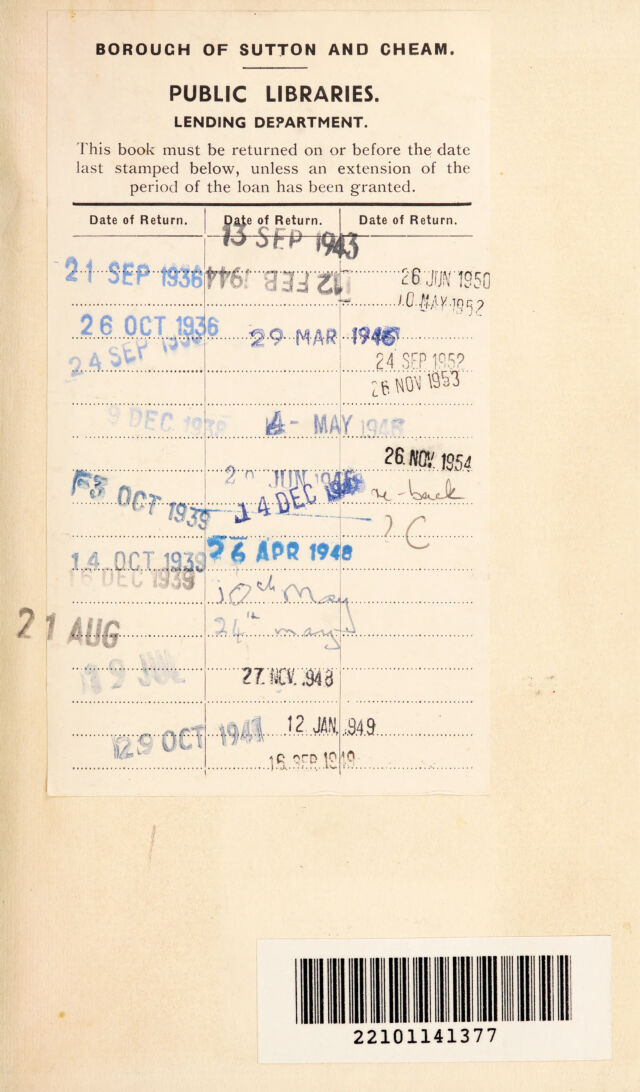 BOROUGH OF SUTTON AND CHEAM.
PUBLIC LIBRARIES.
LENDING DEPARTMENT.
This book must be returned on or before the date
last stamped below, unless an extension of the
period of the loan has been granted.
Date of Return.
21 SEP 1936
26 OCT 1936
24 SEP
9 DEC
3 OCT 1939
14 OCT 1939
16 DEC 1939
21 AUG
19 JUL
29 OCT 1941
Date of Return.
13 SEP 1943
12 FEB 1944
29 MAR
4 - MAY
JUN
14 DEC
26 APR 1948
10th May
24th may
27. NOV. 948
12 JAN. 949
16 SEP 1949
Date of Return.
26 JUN 1950
10 MAY 1952
24 SEP 1952
26 NOV 1953
26. NOV. 1954
re-back
? C
22101141377